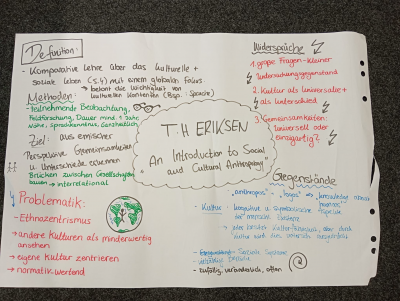 Definition:
- Komparative Lehre über das kulturelle +
soziale Leben (S.4) mit einem globalen Fokus
→ betont die Wichtigkeit von
kulturellen Kontexten (Bsp.: Sprache)
Methoden:
Teilnehmende Beobachtung,
Feldforschung, Dauer mind. 1 Jahr,
Nähe, Sprachkenntnisse, Ganzheitlich
Ziel: aus emischer
Perspektive Gemeinsamkeiten
u. Unterschiede erkennen
Brücken zwischen Gesellschaften
bauen → interrelational
Problematik:
- Ethnozentrismus
→ andere Kulturen als minderwertig
ansehen
→ eigene Kultur zentrieren
→ normativ-wertend
T.H ERIKSEN
"An Introduction to Social
and Cultural Anthropology"
Widersprüche
1. große Fragen - kleiner
Untersuchungsgegenstand
2. Kultur als Universalie +
als Unterschied
3. Gemeinsamkeiten:
Universell oder
einzigartig?
Gegenstände
"anthropos" "logos" → "knowledge about
humans"
- Kultur - kognitive u. symbolische Aspekte
der menschl. Existenz
- Social Systems
- vielfältig, veränderlich, offen